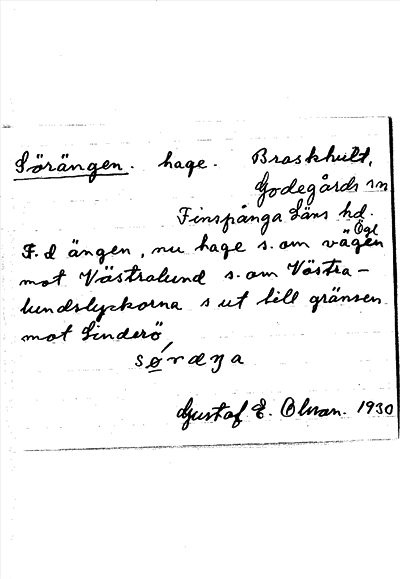 Sörängen. hage. Braskhult,
Godegårds sn
Finspånga Läns hd.
Ögl
F.d ängen, nu hage s. om vägen
mot Västralund s. om Västra-
lundslyckorna s ut till gränsen
mot Linderö
Gustaf E. Olman. 1930